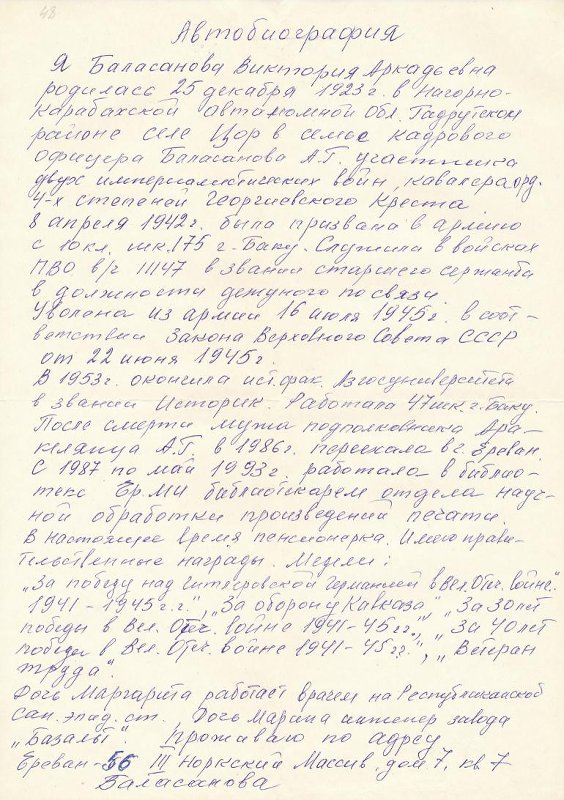 43
Автобиография
Я Баласанова Виктория Аркадьевна
родилась 25 декабря 1923 г. в Нагорно-
Карабахской автономной Обл. Гадрутском
районе селе Цор в семье кадрового
офицера Баласанова А.Г. участника
двух империалистических войн, кавалера орд.
4-х степеней Георгиевского Креста.
8 апреля 1942 г. была призвана в армию
с 10 кл. шк. 175 г. Баку. Служила в войсках
ПВО в/ч 11147 в звании старшего сержанта
в должности дежурного по связи.
Уволена из армии 16 июля 1945 г. в соот-
ветствии Закона Верховного Совета СССР
от 22 июня 1945 г.
В 1953 г. окончила ист. фак. Азгосуниверситета
в звании Историк. Работала 47 шк. г. Баку.
После смерти мужа подполковника Ара-
келянца А.Г. в 1986 г. переехала в г. Ереван.
С 1987 по май 1993 г. работала в библио-
теке Ер. МИ библиотекарем отдела науч-
ной обработки произведений печати.
В настоящее время пенсионерка. Имею прави-
тельственные награды. Медали:
„За победу над Гитлеровской Германией в Вел. Отеч. войне"
1941-1945 г.г.", „За оборону Кавказа", „За 30 лет
победы в Вел. Отеч. войне 1941-45 гг.", „За 40 лет
победы в Вел. Отеч. войне 1941-45 гг.", „Ветеран
труда".
Дочь Маргарита работает врачем на Республиканской
Сан. эпид. ст. Дочь Марина инженер завода
„Базальт" Проживаю по адресу
Ереван-56 III Норкский Массив, дом 7, кв. 7
Баласанова